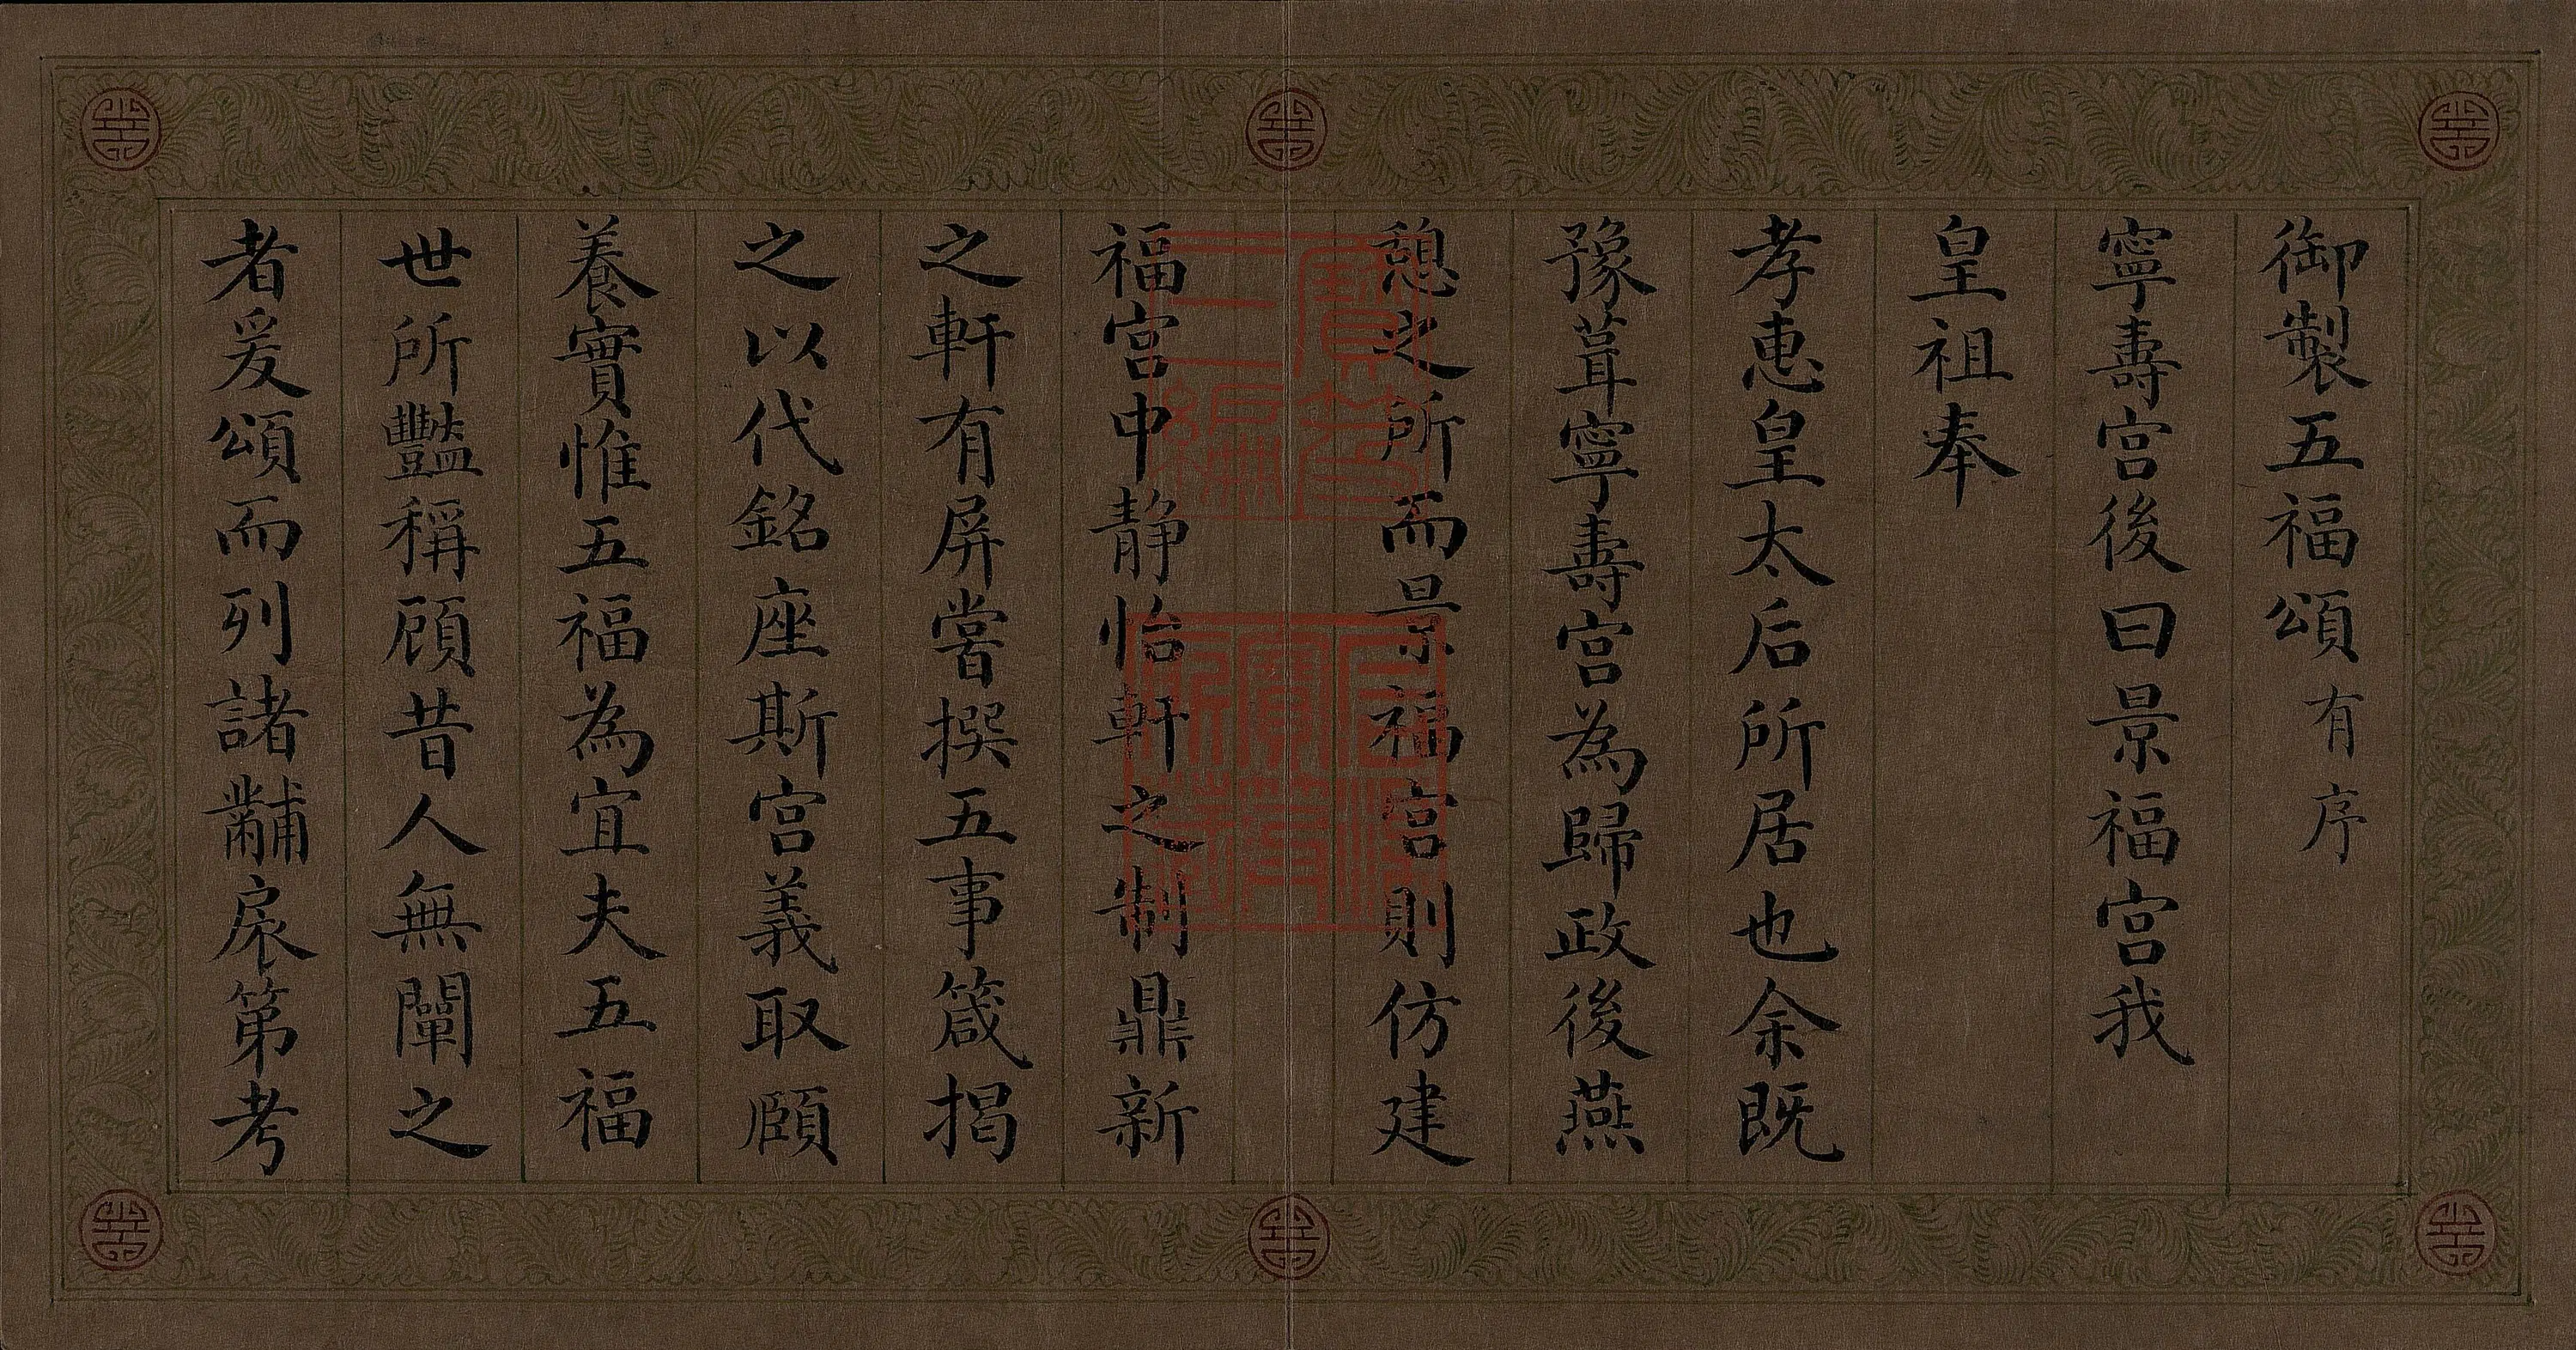 御製五福頌有序
寧壽宮後曰景福宮我
皇祖奉
孝惠皇太后所居也余既
豫葺寧壽宮為歸政後燕
憩之所而景福宮則仿建
福宮中靜怡軒之制鼎新
之軒有屏嘗撰五事箴揭
之以代銘座斯宮義取頤
養實惟五福為宜夫五福
世所豔稱顧昔人無闡之
者爰頌而列諸黼扆第考
寶笈三編
宣統御覽之寶